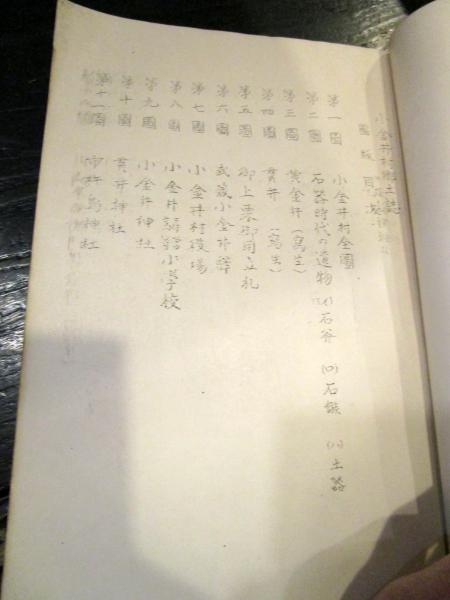 小金井村郷土誌
圖版目次
第一圖 小金井村全圖
第二圖 石器時代の遺物 (イ)石斧 (ロ)石鏃 (ハ)土器
第三圖 黄金井(寫生)
第四圖 貫井(寫生)
第五圖 御上栗御用立札
第六圖 武蔵小金井驛
第七圖 小金井村役場
第八圖 小金井尋常小学校
第九圖 小金井神社
第十圖 貫井神社
第十一圖 神社